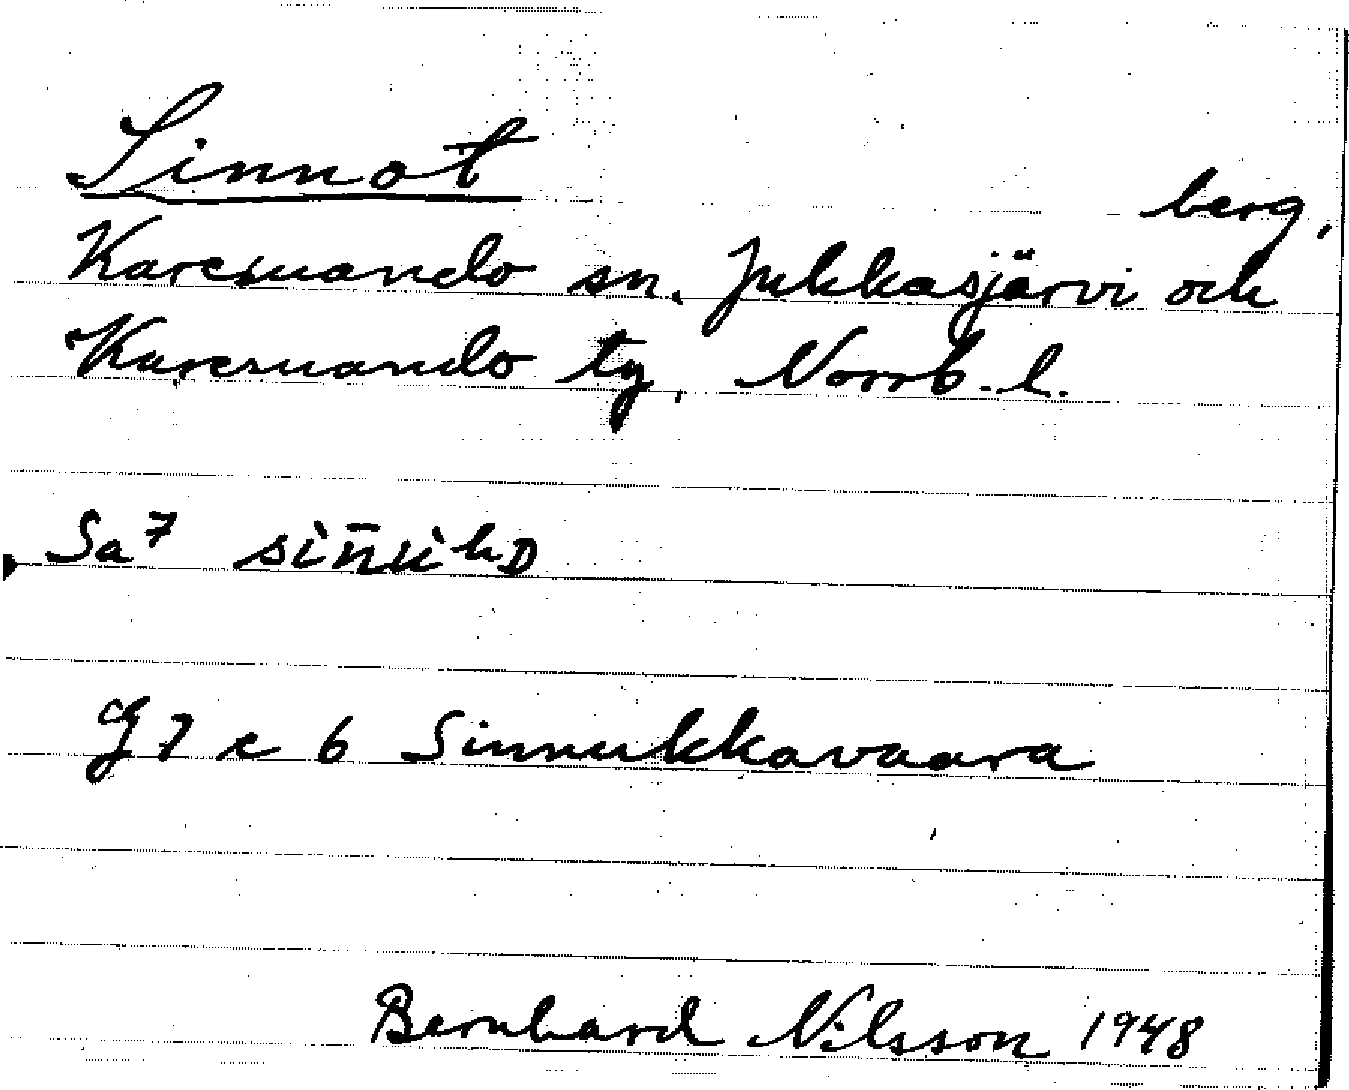 Sinnot
berg,
Karesuando sn. Jukkasjärvi och
Karesuando tg, Norrb. l.
Sa⁷
G 7 c 6 Sinnukkavaara
Bernhard Nilsson 1948